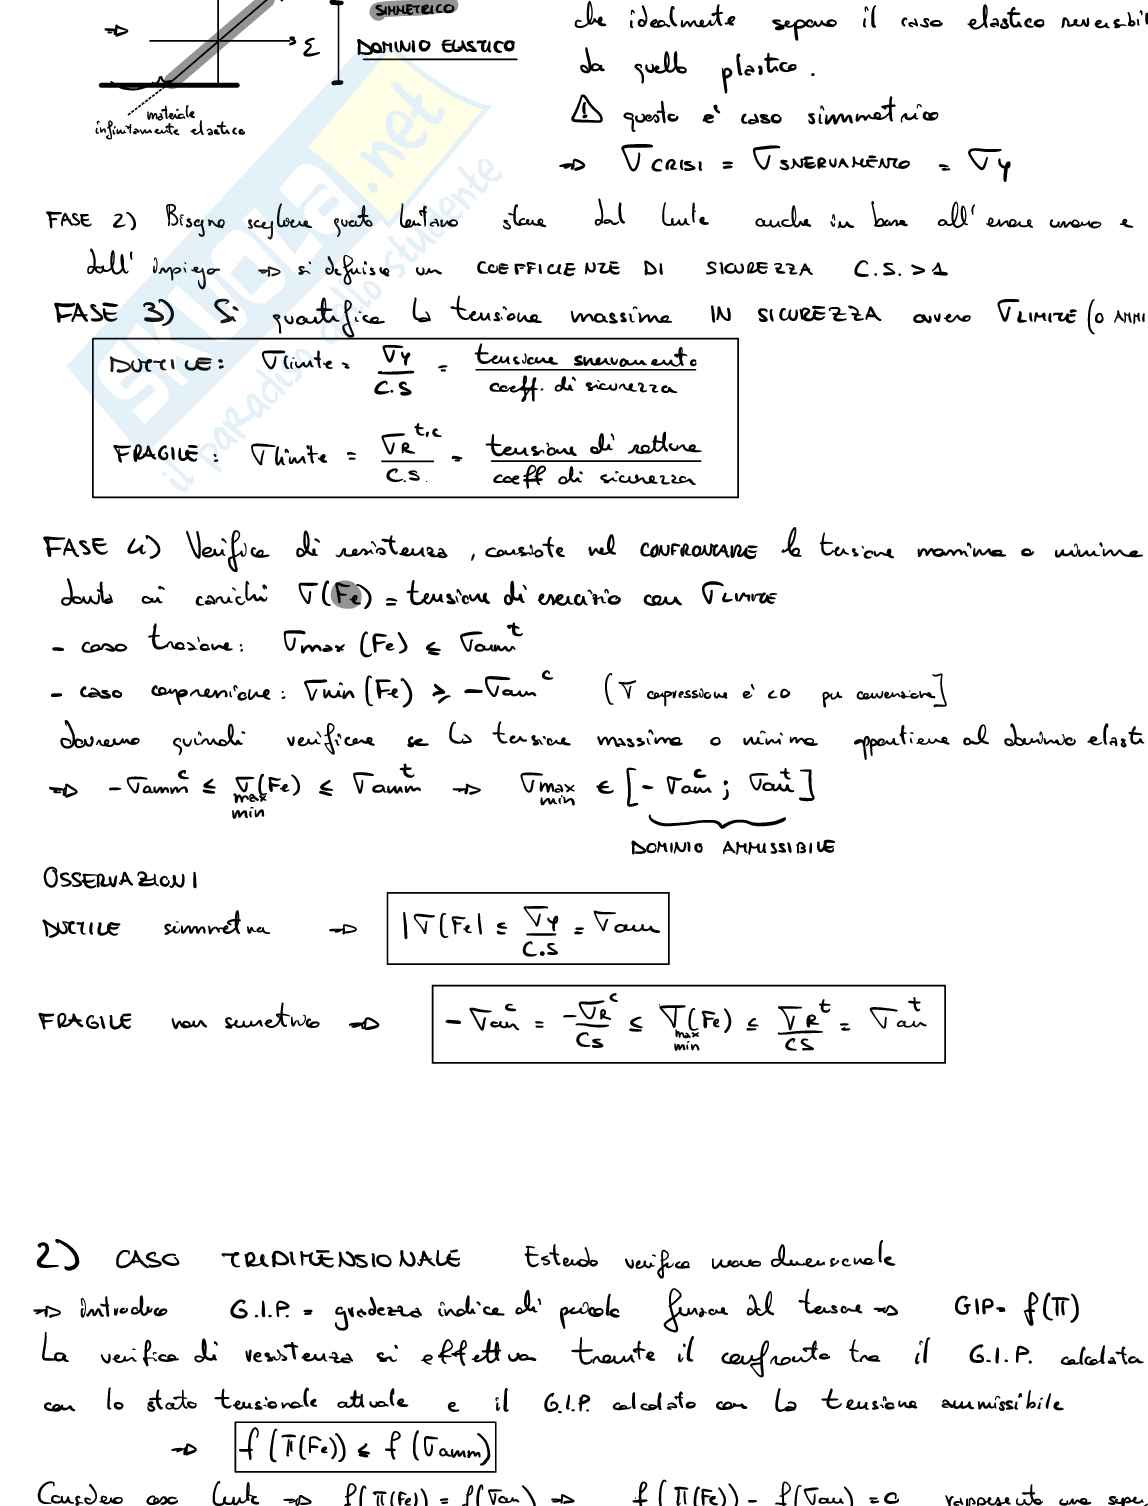 SIMMETRICO
che idealmente separa il caso elastico reversibil
ε
DOMINIO ELASTICO
da quello plastico.
materiale
infinitamente elastico
⚠ questo e' caso simmetrico
⇒ σCRISI = σSNERVAMENTO = σy
FASE 2) Bisogna scegliere quanto lontano stare dal limite anche in base all' errore umano e
dall' impiego ⇒ si definisce un COEFFICIENZE DI SICUREZZA C.S. > 1
FASE 3) Si quantifica la tensione massima IN SICUREZZA ovvero σLIMITE (o AMMI
DUTTILE: σlimite = σy / C.S = tensione snervamento / coeff. di sicurezza
FRAGILE: σlimite = σR^t,c / C.S. = tensione di rottura / coeff di sicurezza
FASE 4) Verifica di resistenza, consiste nel CONFRONTARE la tensione massima o minima
dovuta ai carichi σ(Fe) = tensione di esercizio con σLIMITE
- caso trazione: σmax (Fe) ≤ σamm^t
- caso compressione: σmin (Fe) ≥ -σam^c (σ compressione e' <0 per convenzione]
dovremo quindi verificare se la tensione massima o minima appartiene al dominio elasti
⇒ -σamm^c ≤ σ(Fe) ≤ σamm^t → σmax ∈ [-σam^c ; σam^t]
max min
min
DOMINIO AMMISSIBILE
OSSERVAZIONI
DUTTILE simmetrica ⇒ |σ(Fe| ≤ σy / C.S = σam
FRAGILE non simmetrico ⇒ -σam^c = -σR^c / CS ≤ σ(Fe) ≤ σR^t / CS = σam^t
max
min
2) CASO TRIDIMENSIONALE Estendo verifica mono dimensionale
⇒ Introduco G.I.P. = grandezza indice di pericolo funzione del tensore ⇒ GIP= f(Π)
La verifica di resistenza si effettua tramite il confronto tra il G.I.P. calcolata
con lo stato tensionale attuale e il G.I.P. calcolato con la tensione ammissibile
⇒ f (Π(Fe)) ≤ f (σamm)
Considero caso limite ⇒ f(Π(Fe)) = f(σam) ⇒ f (Π(Fe)) - f(σam) = 0 rappresenta una supe
SKUOLA.net
il paradiso dello studente